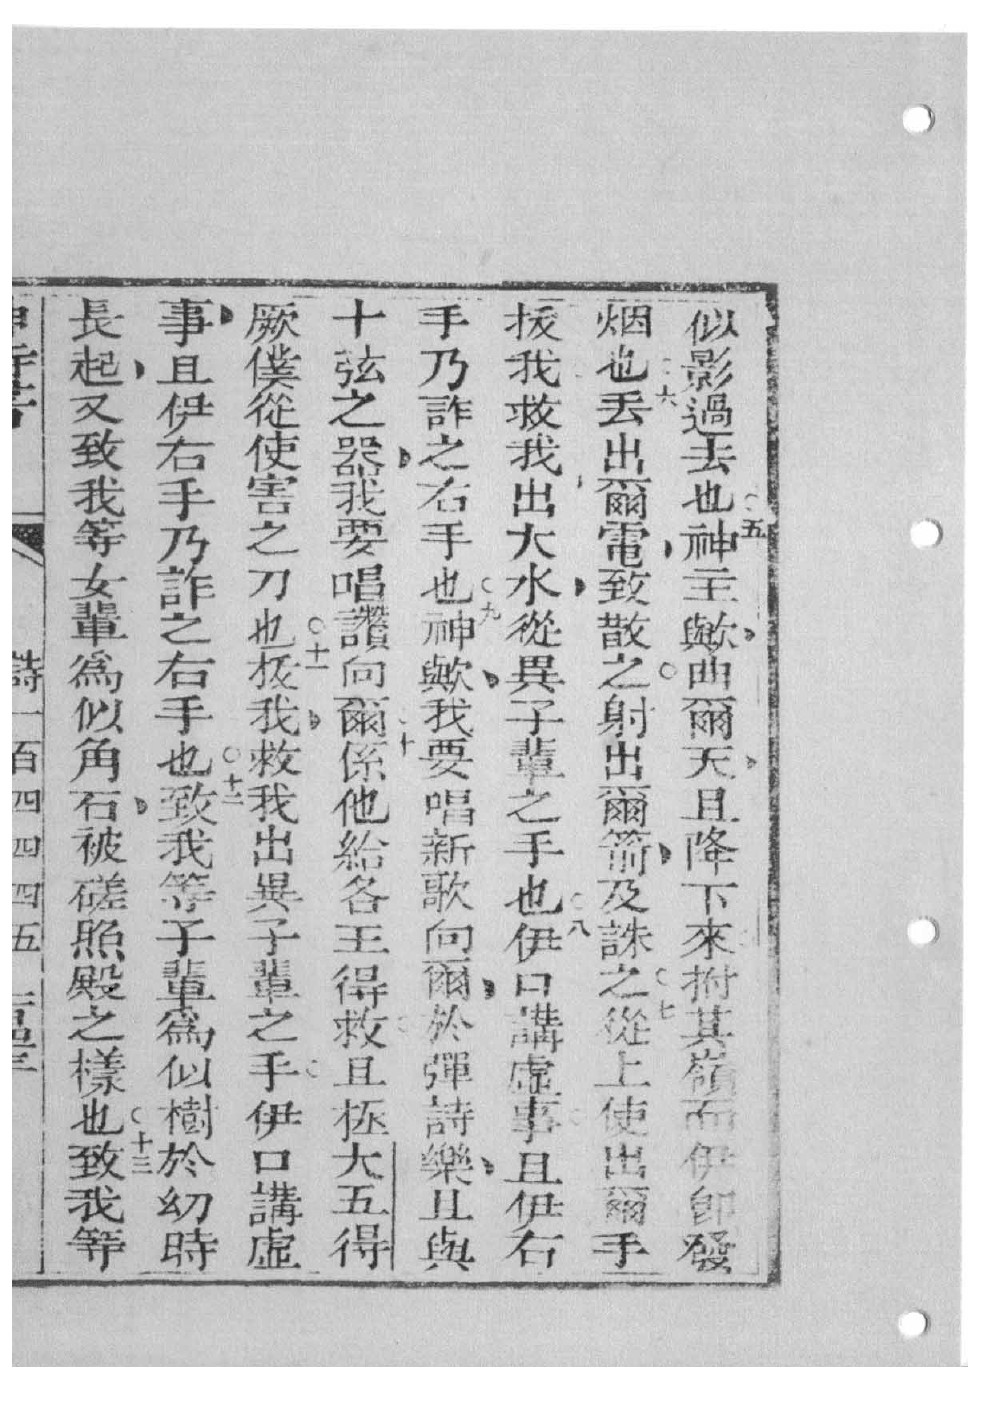 似影過去也神主歟曲爾天且降下來拊其嶺而伊卽發
五
烟也丟出爾電致散之射出爾箭及誅之從上使出爾手
六
七
援我救我出大水從異子輩之手也伊口講虛事且伊右
八
手乃詐之右手也神歟我要唱新歌向爾於彈詩樂且與
九
十弦之器我要唱讚向爾係他給各王得救且拯大五得
十
厥僕從使害之刀也扱我救我出異子輩之手伊口講虛
十一
事且伊右手乃詐之右手也致我等子輩為似樹於幼時
十二
長起又致我等女輩為似角石被磋照殿之樣也致我等
十三
詩一百四四四五